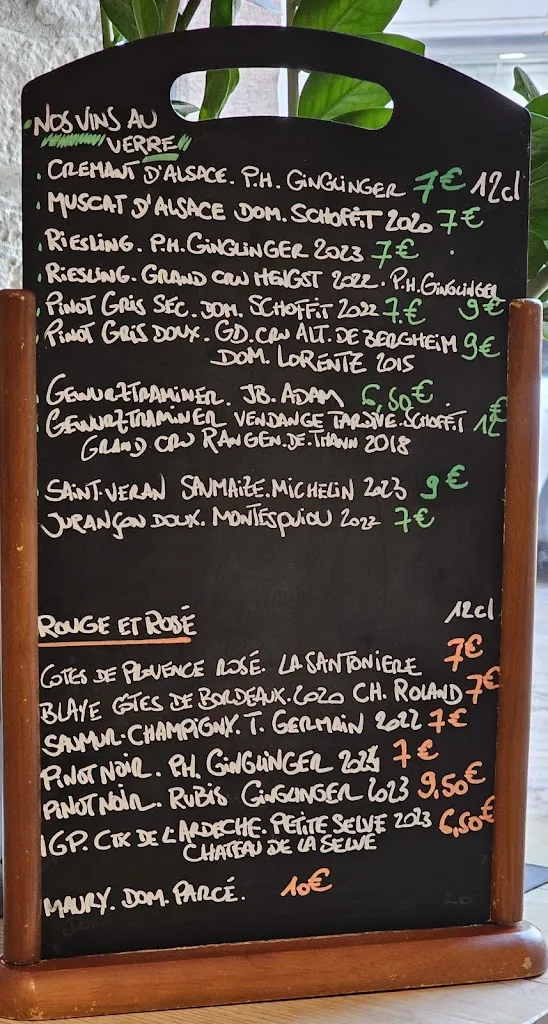 NOS VINS AU
VERRE
CREMANT D'ALSACE. P.H. GINGLINGER 7€ 12cl
MUSCAT D'ALSACE DOM. SCHOFFIT 2020 7€
RIESLING. P.H. GINGLINGER 2023 7€
RIESLING. GRAND CRU HENGST 2022. P.H. GINGLINGER
9€
PINOT GRIS SEC. DOM. SCHOFFIT 2022 7.€
PINOT GRIS DOUX. GD. CRU ALT. DE BERGHEIM 9€
DOM. LORENTZ 2015
GEWURZTRAMINER. JB. ADAM 6,50€
GEWURZTRAMINER VENDANGE TARDIVE. SCHOFFIT 12€
GRAND CRU RANGEN. DE. THANN 2018
SAINT-VERAN SAUMAIZE. MICHELIN 2023 9€
JURANÇON DOUX. MONTESQUIOU 2022 7€
12cl
ROUGE ET ROSÉ
COTES DE PROVENCE ROSÉ. LA SANTONIERE 7€
BLAYE COTES DE BORDEAUX. 2020 CH. ROLAND 7€
SAUMUR-CHAMPIGNY. T. GERMAIN 2022 7€
PINOT NOIR. P.H. GINGLINGER 7€
PINOT NOIR. RUBIS GINGLINGER 2023 9,50€
IGP. CTX DE L'ARDECHE. PETITE SELVE 2023 6,50€
CHATEAU DE LA SELVE
MAURY. DOM. PARCÉ. 10€